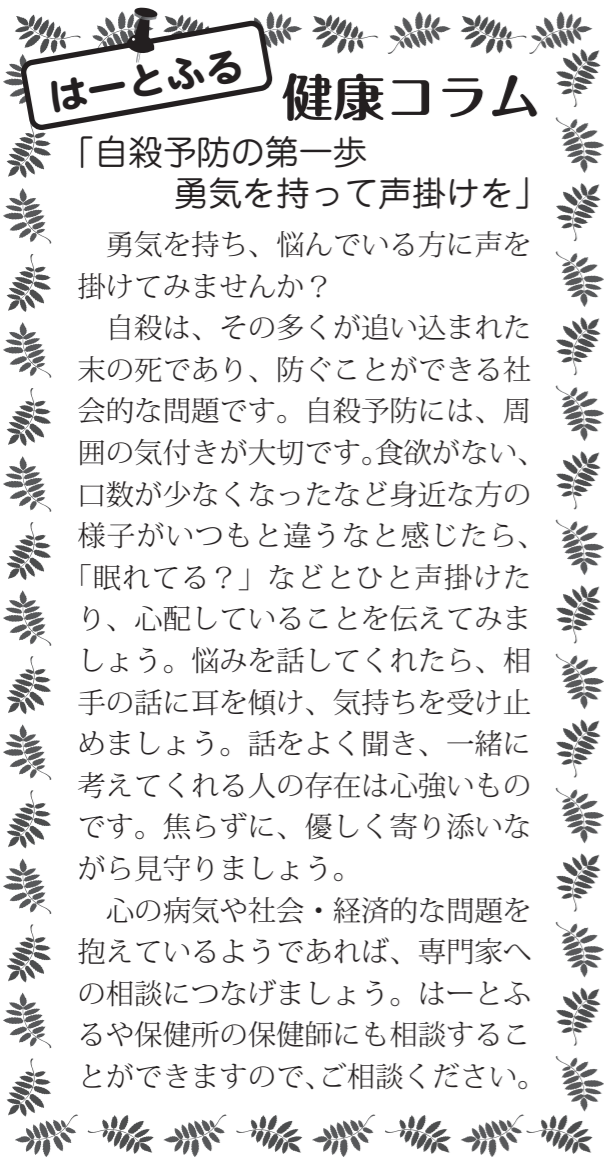 はーとふる
健康コラム
「自殺予防の第一歩
勇気を持って声掛けを」
勇気を持ち、悩んでいる方に声を
掛けてみませんか？
自殺は、その多くが追い込まれた
末の死であり、防ぐことができる社
会的な問題です。自殺予防には、周
囲の気付きが大切です。食欲がない、
口数が少なくなったなど身近な方の
様子がいつもと違うなと感じたら、
「眠れてる？」などとひと声掛けた
り、心配していることを伝えてみま
しょう。悩みを話してくれたら、相
手の話に耳を傾け、気持ちを受け止
めましょう。話をよく聞き、一緒に
考えてくれる人の存在は心強いもの
です。焦らずに、優しく寄り添いな
がら見守りましょう。
心の病気や社会・経済的な問題を
抱えているようであれば、専門家へ
の相談につなげましょう。はーとふ
るや保健所の保健師にも相談するこ
とができますので、ご相談ください。